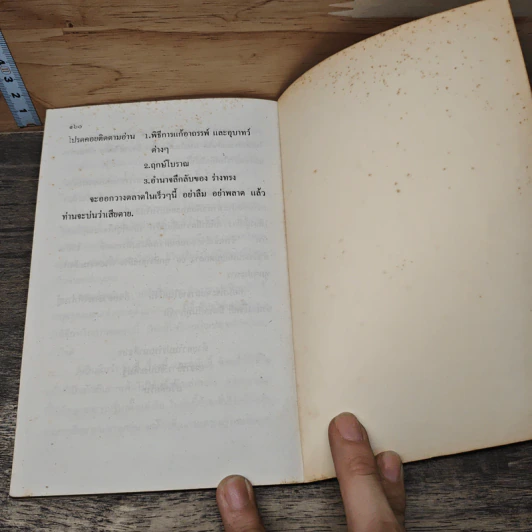 ๑๖๓
โปรดคอยติดตามอ่าน 1.พิธีการแก้อาถรรพ์ และอุบาทว์
ต่างๆ
2.ฤกษ์โบราณ
3.อำนาจลึกลับของ ร่างทรง
จะออกวางตลาดในเร็วๆนี้ อย่าลืม อย่าพลาด แล้ว
ท่านจะบ่นว่าเสียดาย.
4 3 2 1